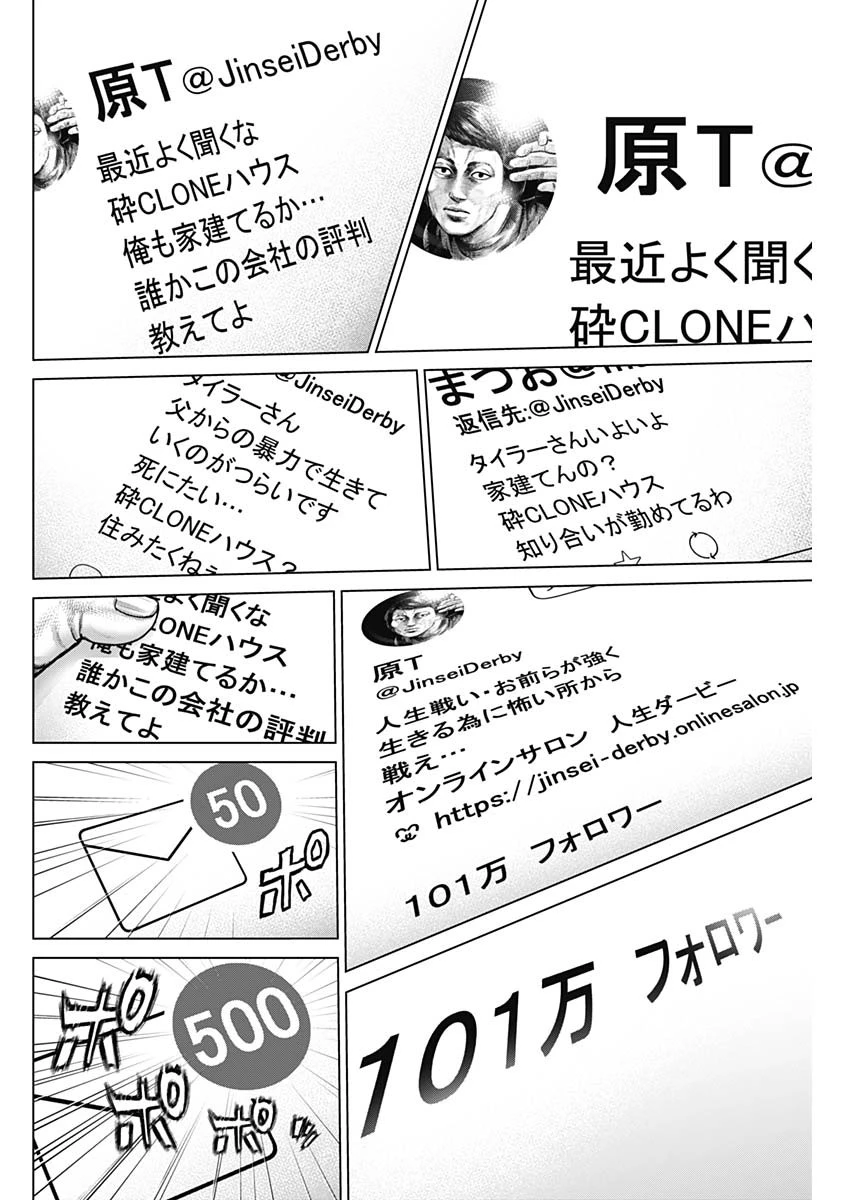 原T@
最近よく聞く
砕CLONEハ
原T@JinseiDerby
最近よく聞くな
砕CLONEハウス
俺も家建てるか…
誰かこの会社の評判
教えてよ
まつお@
返信先:@JinseiDerby
タイラーさんいよいよ
家建てんの？
砕CLONEハウス
知り合いが勤めてるわ
@JinseiDerby
タイラーさん
父からの暴力で生きて
いくのがつらいです
死にたい…
砕CLONEハウス？
住みたくねぇ
原T
@JinseiDerby
人生戦い・お前らが強く
生きる為に怖い所から
戦え…
オンラインサロン 人生ダービー
https://jinsei-derby.onlinesalon.jp
101万 フォロワー
よく聞くな
LONEハウス
俺も家建てるか…
誰かこの会社の評判
教えてよ
50
ポ
101万 フォロワー
500
ポ
ポ
ポ